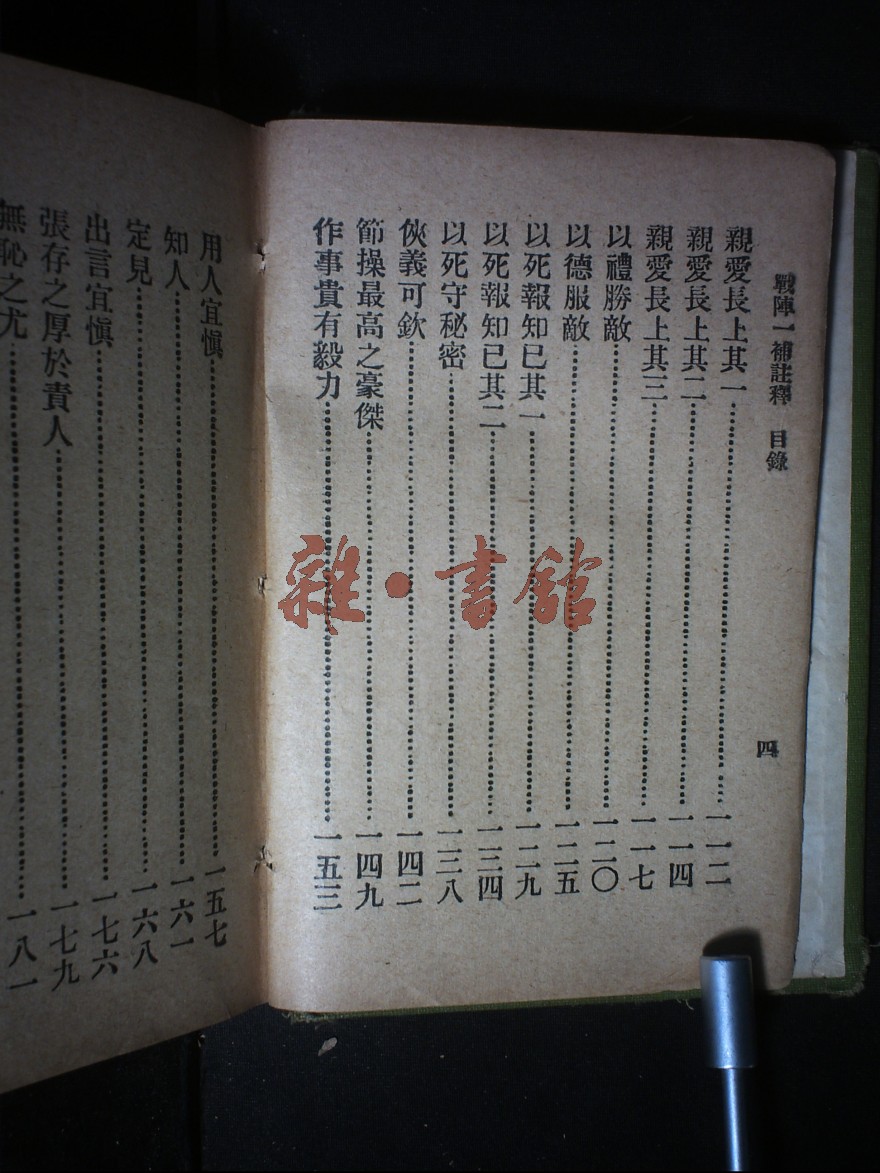 戰陣一補註釋 目錄
四
親愛長上其一……一一二
親愛長上其二……一一四
親愛長上其三……一一七
以禮勝敵……一二〇
以德服敵……一二五
以死報知已其一……一二九
以死報知已其二……一三四
以死守秘密……一三八
俠義可欽……一四二
節操最高之豪傑……一四九
作事貴有毅力……一五三
用人宜慎……一五七
知人……一六一
定見……一六八
出言宜慎……一七六
張存之厚於責人……一七九
無恥之尤……一八一
雜·書館